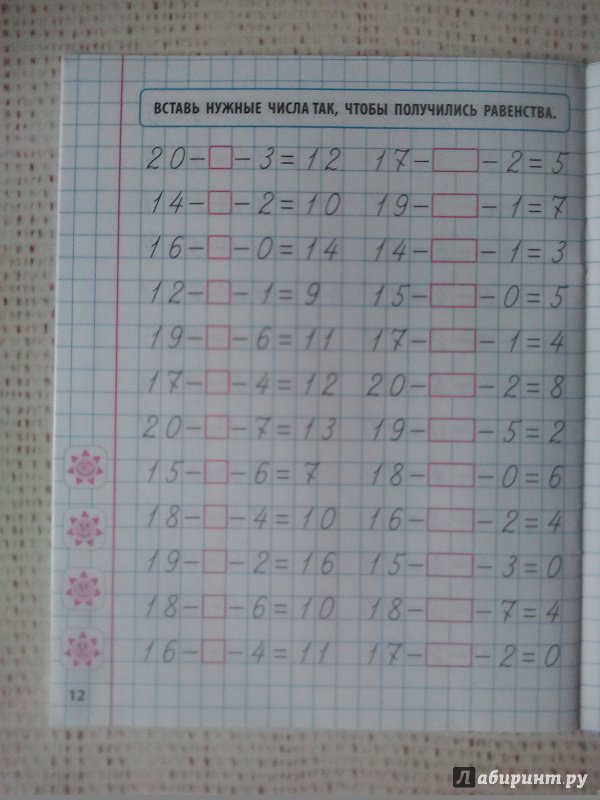 ВСТАВЬ НУЖНЫЕ ЧИСЛА ТАК, ЧТОБЫ ПОЛУЧИЛИСЬ РАВЕНСТВА.
20-□-3=12 17-□-2=5
14-□-2=10 19-□-1=7
16-□-0=14 14-□-1=3
12-□-1=9 15-□-0=5
19-□-6=11 17-□-1=4
17-□-4=12 20-□-2=8
20-□-7=13 19-□-5=2
15-□-6=7 18-□-0=6
18-□-4=10 16-□-2=4
19-□-2=16 15-□-3=0
18-□-6=10 18-□-7=4
16-□-4=11 17-□-2=0
12
Лабиринт.ру